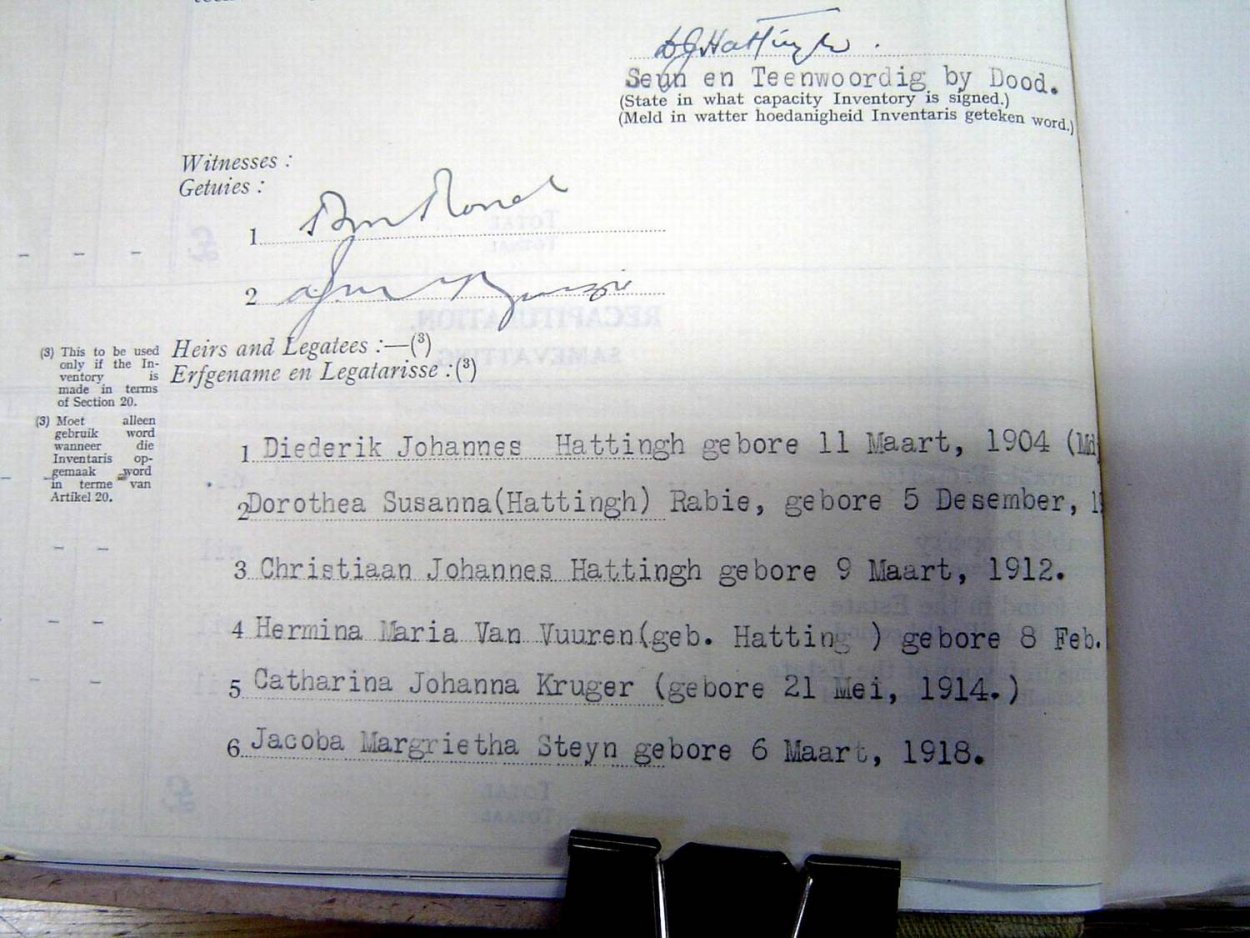 DJ Hattingh.
Seun en Teenwoordig by Dood.
(State in what capacity Inventory is signed.)
(Meld in watter hoedanigheid Inventaris geteken word.)
Witnesses :
Getuies :
1
2
Heirs and Legatees :—(3)
Erfgename en Legatarisse :(3)
(3) This to be used
only if the In-
ventory is
made in terms
of Section 20.
(3) Moet alleen
gebruik word
wanneer die
Inventaris op-
gemaak word
in terme van
Artikel 20.
1 Diederik Johannes Hattingh gebore 11 Maart, 1904
2 Dorothea Susanna(Hattingh) Rabie, gebore 5 Desember,
3 Christiaan Johannes Hattingh gebore 9 Maart, 1912.
4 Hermina Maria Van Vuuren(geb. Hatting ) gebore 8 Feb.
5 Catharina Johanna Kruger (gebore 21 Mei, 1914.)
6 Jacoba Margrietha Steyn gebore 6 Maart, 1918.